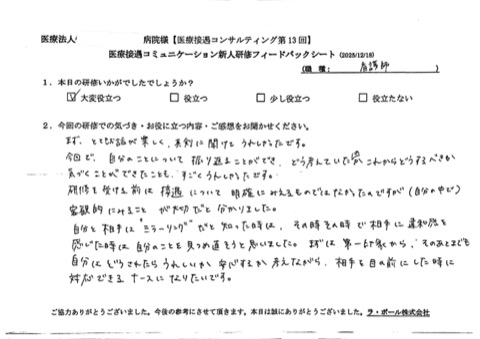 医療法人 病院様【医療接遇コンサルティング第13回】
医療接遇コミュニケーション新人研修フィードバックシート (2025/12/18)
(職種: 看護師)
1. 本日の研修いかがでしたでしょうか?
☑大変役立つ □役立つ □少し役立つ □役立たない
2. 今回の研修での気づき・お役に立つ内容・ご感想をお聞かせください。
まず、とてもお話が楽しく、真剣に聞けてうれしかったです。
今回で、自分のことについて振り返ることができ、どう考えていたのか これからどうするべきか
気づくことができたことも、すごくうれしかったです。
研修を受ける前は接遇について明確にみえるものではなかったのですが(自分の中で)
客観的にみることが大切だと分かりました。
自分と相手は"ミラーリング"だと知った時は、その時その時で相手に違和感を
感じた時は自分のことを見つめ直そうと思いました。まずは第一印象から、そのあとまでも
自分はどうされたらうれしいか 安心するか 考えながら、相手を目の前にした時に
対応できるナースになりたいです。
ご協力ありがとうございました。今後の参考にさせて頂きます。本日は誠にありがとうございました。ラ・ポール株式会社